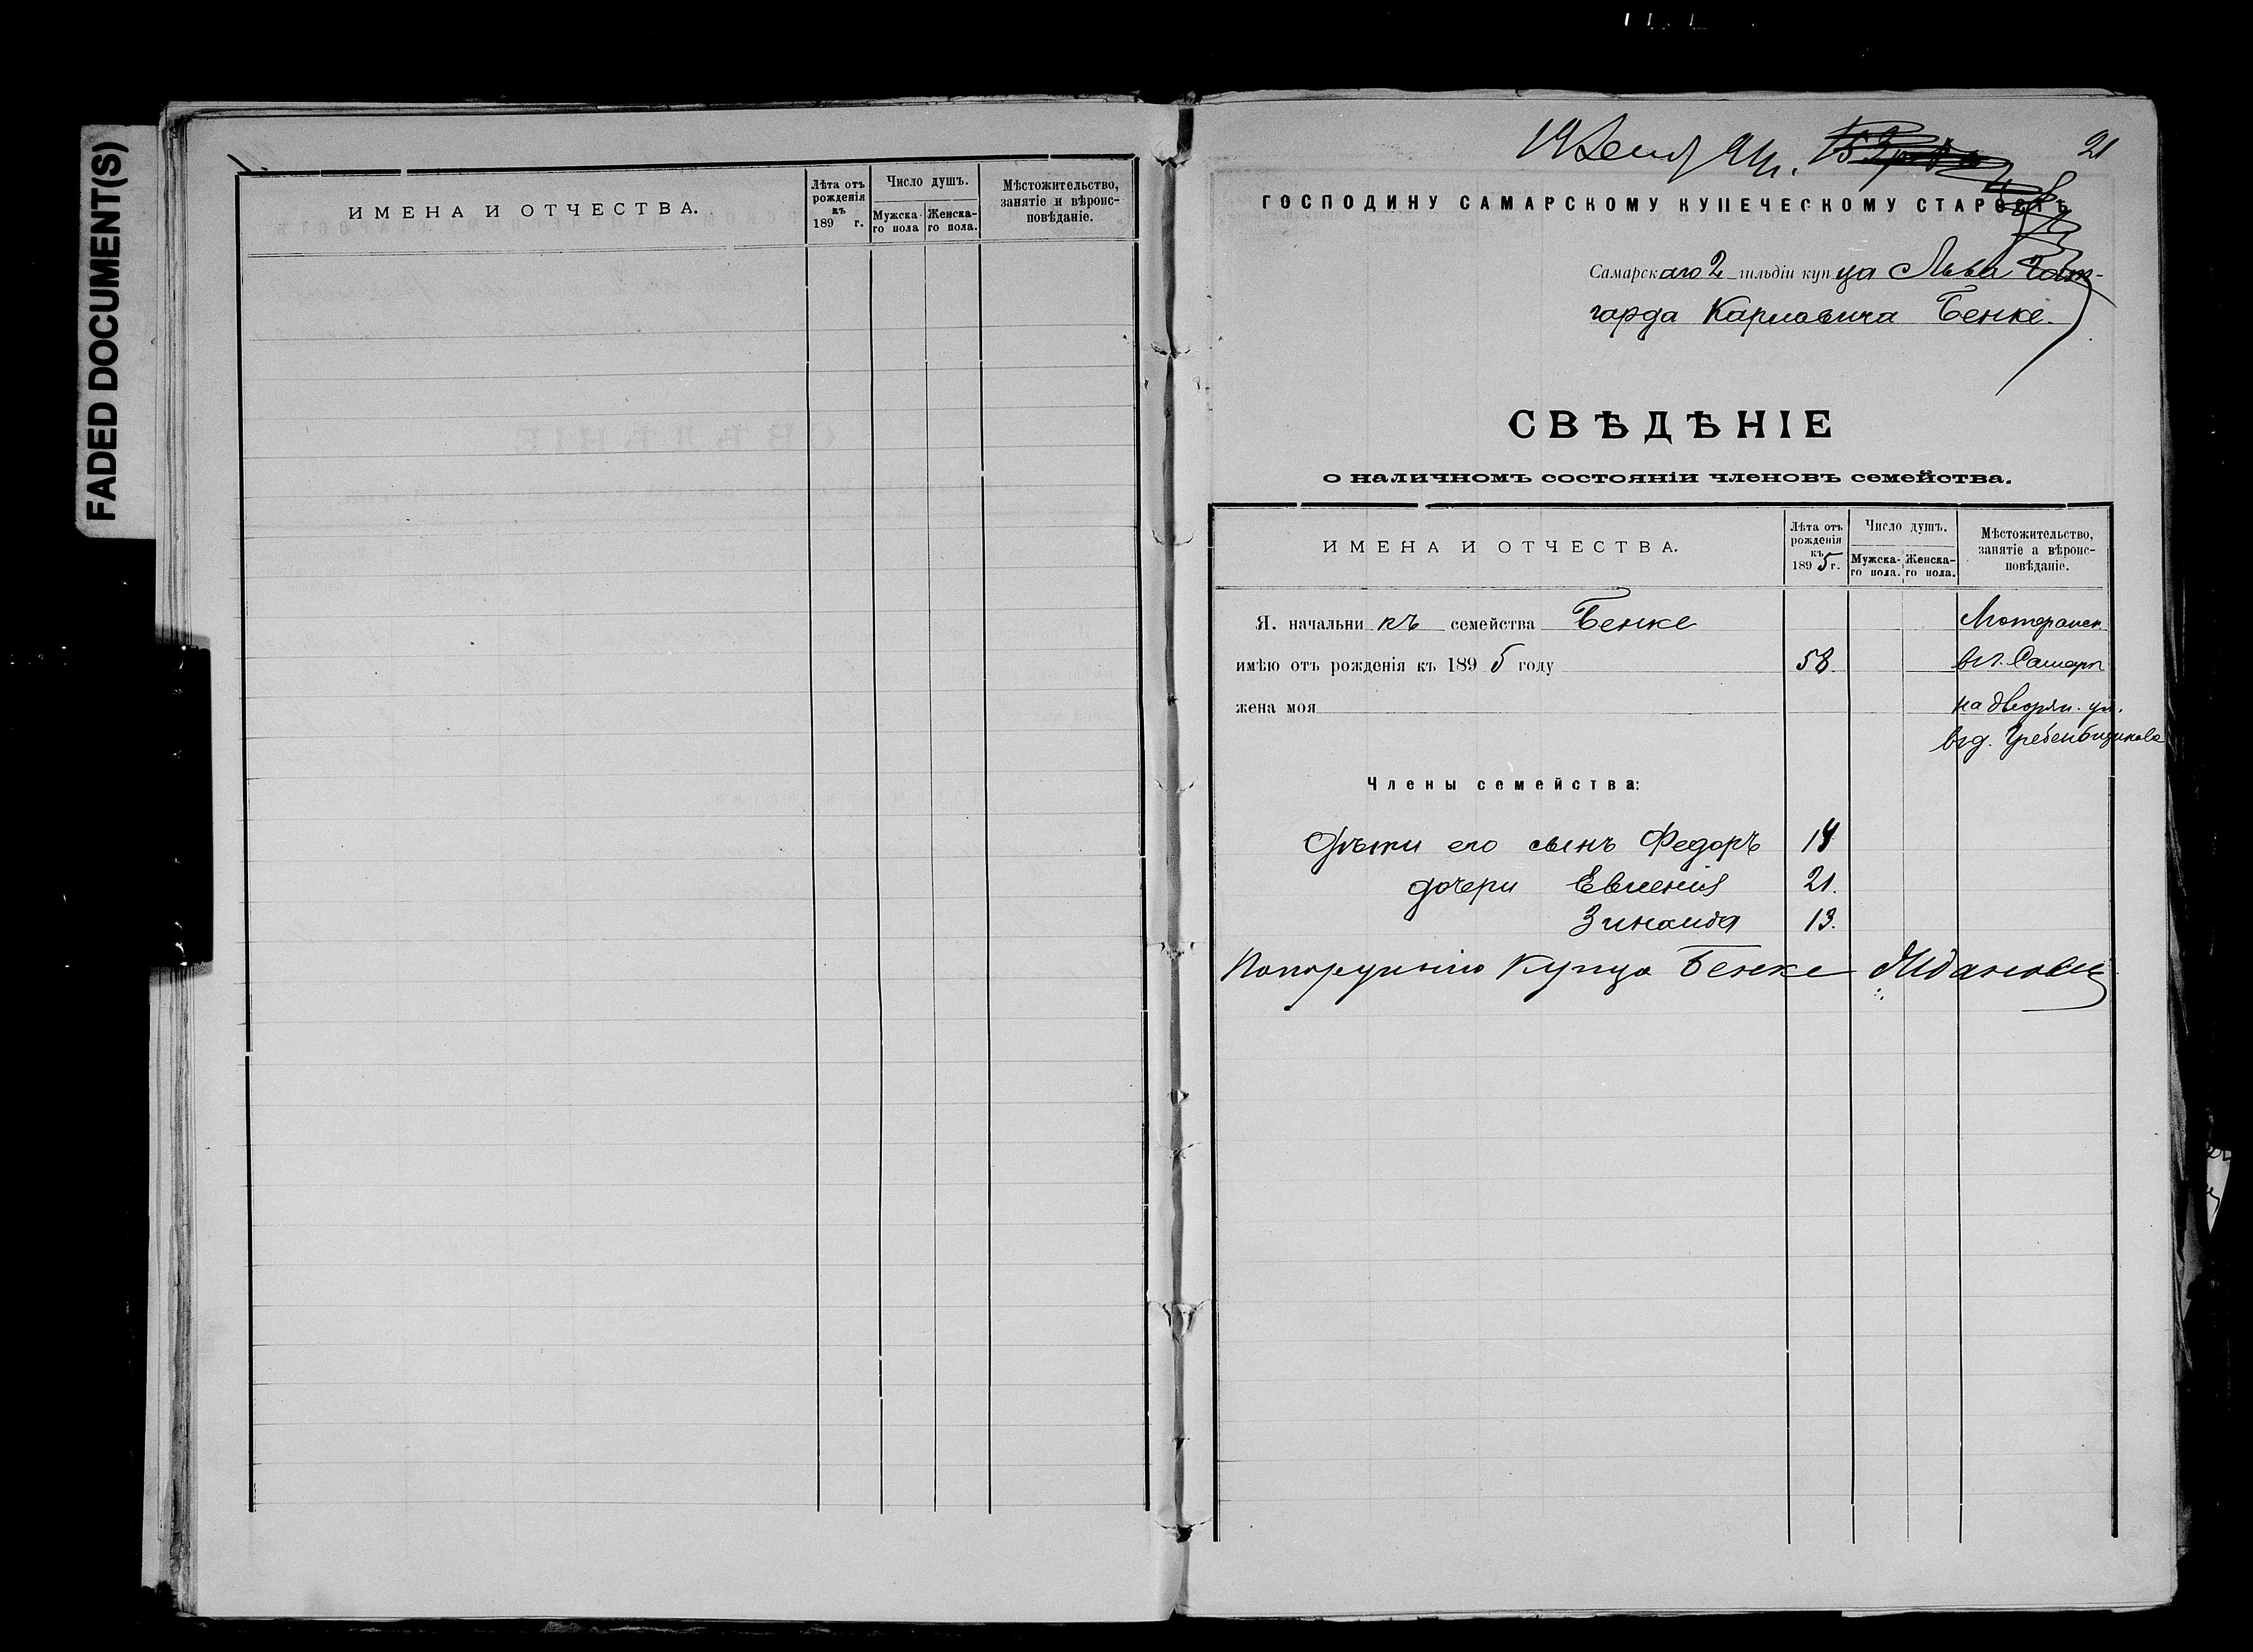 FADED DOCUMENT(S)
ИМЕНА И ОТЧЕСТВА.
Лѣта отъ
рожденія
къ
189 г.
Число душъ.
Мужска-
го пола
Женска-
го пола.
Мѣстожительство,
занятіе и вѣроис-
повѣданіе.
94 г. 21
ГОСПОДИНУ САМАРСКОМУ КУПЕЧЕСКОМУ СТАРОСТѢ
Самарскаго 2 гильдіи купца Льва Гот-
гарда Карловича Бенке.
СВѢДѢНІЕ
о наличномъ состояніи членовъ семейства.
ИМЕНА И ОТЧЕСТВА.
Лѣта отъ
рожденія
къ
1895 г.
Число душъ.
Мужска-
го пола.
Женска-
го пола.
Мѣстожительство,
занятіе а вѣроис-
повѣданіе.
Я. начальникъ семейства Бенке Лютеранск.
имѣю отъ рожденія къ 1895 году 58. въ г. Самарѣ
жена моя на дворян. ул.
въ д. Гребенщикова
Члены семейства:
Дѣти его сынъ Федоръ 14
дочери Евгенія 21.
Зинаида 13.
По порученію Купца Бенке